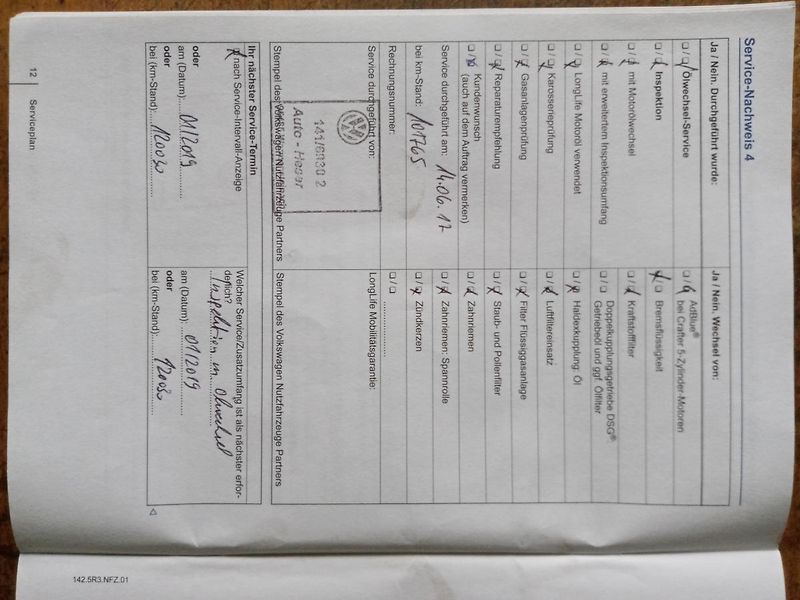 Service-Nachweis 4
Ja / Nein. Durchgeführt wurde:
☐/☐ Ölwechsel-Service
☐/☐ Inspektion
☐/☐ mit Motorölwechsel
☐/☐ mit erweitertem Inspektionsumfang
☐/☐ LongLife Motoröl verwendet
☐/☐ Karosserieprüfung
☐/☐ Gasanlagenprüfung
☐/☐ Reparaturempfehlung
☐/☐ Kundenwunsch
(auch auf dem Auftrag vermerken)
Service durchgeführt am: 14.06.17
bei km-Stand: 101765
Rechnungsnummer:
Service durchgeführt von:
141/6830 2
Auto - Heser
Stempel des Volkswagen Nutzfahrzeuge Partners
Ja / Nein. Wechsel von:
☐/☐ AdBlue®
bei Crafter 5-Zylinder-Motoren
☐/☐ Bremsflüssigkeit
☐/☐ Kraftstofffilter
☐/☐ Doppelkupplungsgetriebe DSG®:
Getriebeöl und ggf. Ölfilter
☐/☐ Haldexkupplung: Öl
☐/☐ Luftfiltereinsatz
☐/☐ Filter Flüssiggasanlage
☐/☐ Staub- und Pollenfilter
☐/☐ Zahnriemen
☐/☐ Zahnriemen: Spannrolle
☐/☐ Zündkerzen
☐/☐ ....................
LongLife Mobilitätsgarantie:
Stempel des Volkswagen Nutzfahrzeuge Partners
Ihr nächster Service-Termin
☐ nach Service-Intervall-Anzeige
oder
am (Datum): 01/2019
oder
bei (km-Stand): 120030
Welcher Service/Zusatzumfang ist als nächster erfor-
derlich?
Inspektion m. Ölwechsel
am (Datum): 01/2019
oder
bei (km-Stand): 120030
12 Serviceplan
142.5R3.NFZ.01